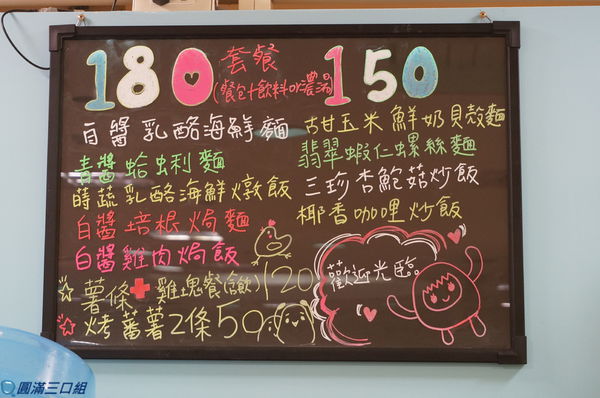 180 套餐 150
(餐包+飲料or濃湯)
白醬乳酪海鮮麵
青醬蛤蜊麵
蒔蔬乳酪海鮮燉飯
白醬培根焗麵
白醬雞肉焗飯
薯條+雞塊餐(飲)120
烤蕃薯2條50
古甘玉米鮮奶貝殼麵
翡翠蝦仁螺絲麵
三珍杏鮑菇炒飯
椰香咖哩炒飯
歡迎光臨
圓滿三口組